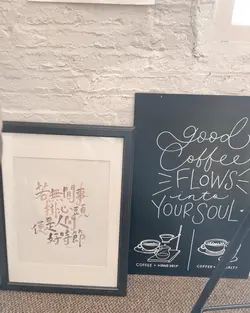 若無閒事
掛心頭
便是人間
好時節
good
Coffee
FLOWS
into
YOUR SOUL
COFFEE + HAND DRIP
COFFEE